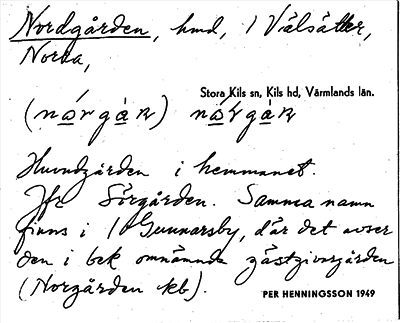 Nordgården, hmd, 1 Vålsätter,
Norra,
Stora Kils sn, Kils hd, Värmlands län.
Huvudgården i hemmanet.
Jfr Sörgården. Samma namn
finns i 1 Gunnarsby, där det avser
den i bek omnämnda gästgivargården
(Norgården kb).
PER HENNINGSSON 1949